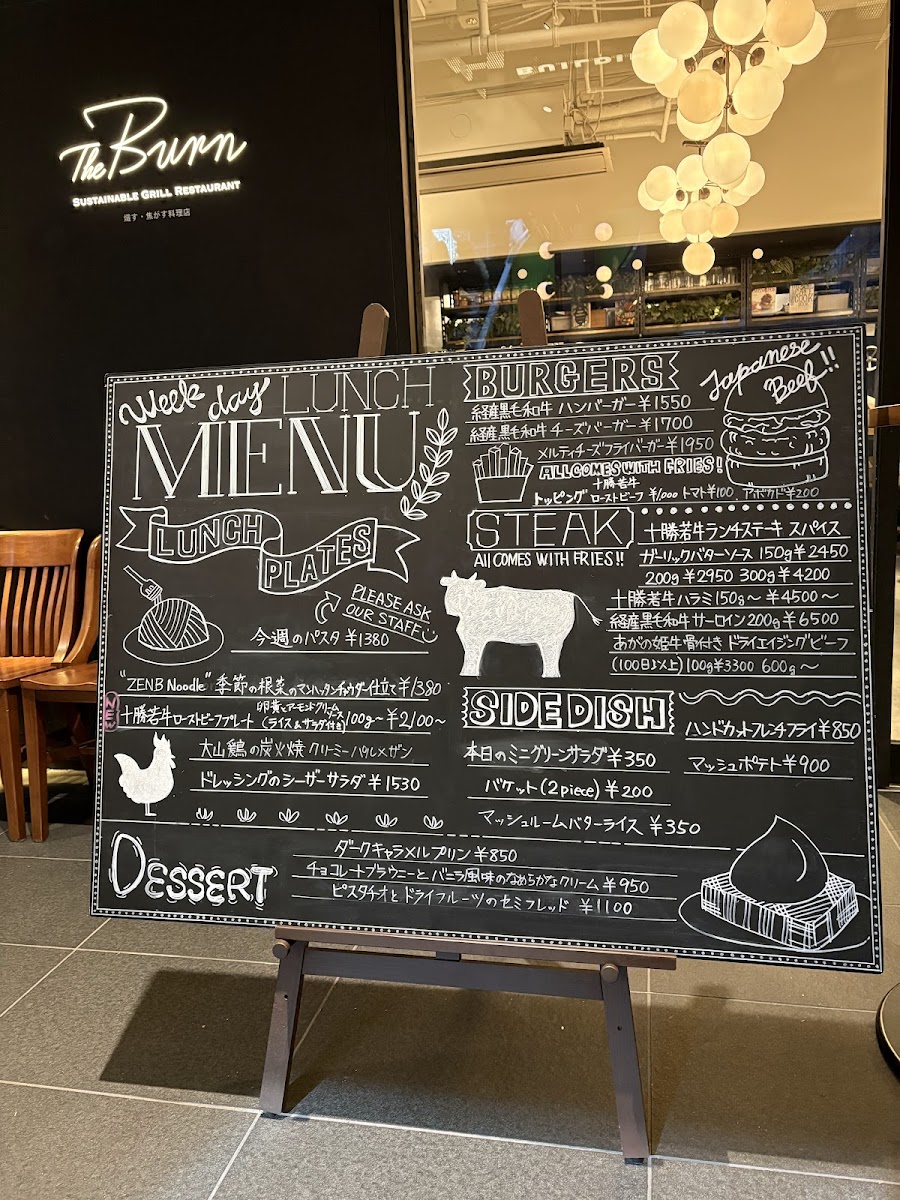 The Burn
SUSTAINABLE GRILL RESTAURANT
熾す・焦がす料理店
Week day LUNCH
MENU
LUNCH
PLATES
PLEASE ASK
OUR STAFF
今週のパスタ ¥1380
"ZENB Noodle" 季節の根菜のマンハッタンチャウダー仕立て ¥1380
NEW
十勝若牛ローストビーフプレート 卵黄とアーモンドクリーム
(ライス&サラダ付き) 100g~ ¥2,100~
大山鶏の炭火焼 クリーミーパルメザン
ドレッシングのシーザーサラダ ¥1530
BURGERS
Japanese
Beef!!
経産黒毛和牛 ハンバーガー ¥1550
経産黒毛和牛 チーズバーガー ¥1700
メルティチーズフライバーガー ¥1950
ALL COMES WITH FRIES!
十勝若牛
トッピング ローストビーフ ¥1,000 トマト¥100 アボカド¥200
STEAK
All COMES WITH FRIES!!
十勝若牛ランチステーキ スパイス
ガーリックバターソース 150g ¥2450
200g ¥2950 300g ¥4200
十勝若牛 ハラミ 150g~ ¥4500~
経産黒毛和牛サーロイン 200g ¥6500
あかの姫牛骨付き ドライエイジングビーフ
(100日以上) 100g ¥3300 600g~
SIDE DISH
本日のミニグリーンサラダ ¥350
バケット (2piece) ¥200
マッシュルームバターライス ¥350
ハンドカットフレンチフライ ¥850
マッシュポテト ¥900
DESSERT
ダークキャラメルプリン ¥850
チョコレートブラウニーと バニラ風味のなめらかなクリーム ¥950
ピスタチオと ドライフルーツのセミフレッド ¥1100